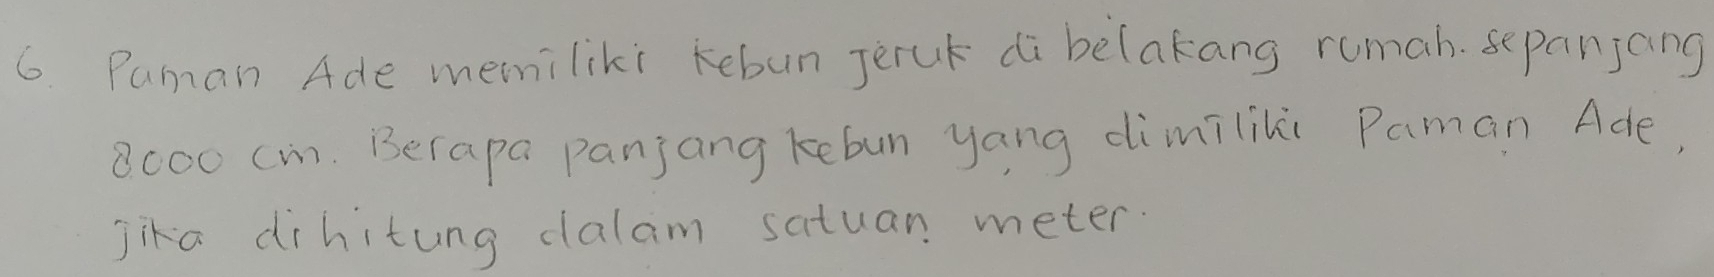 6. Paman Ade memiliki kebun jeruk di belakang rumah. sepanjang
8000 cm. Berapa panjang kebun yang dimiliki Paman Ade,
jika dihitung dalam satuan meter.